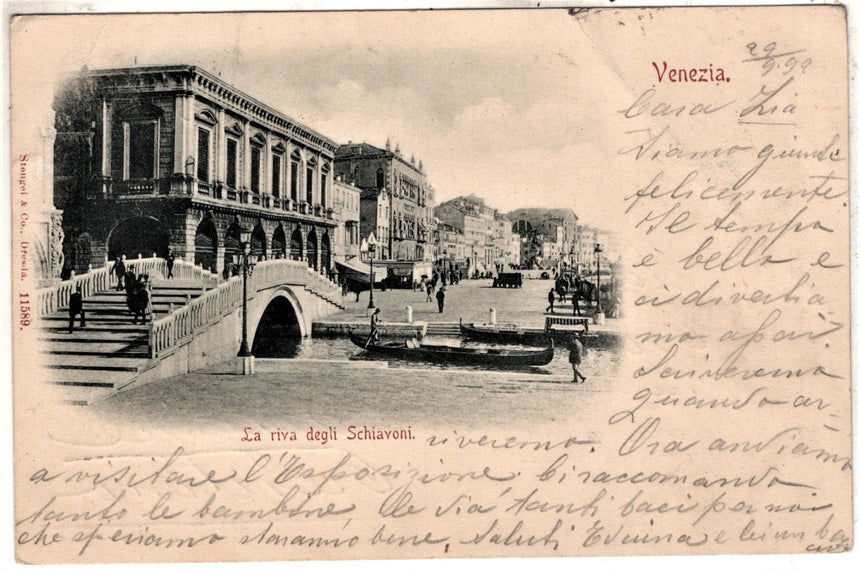 Venezia.
29
9.99
Cara Zia
Siamo giunte
felicemente.
Il tempo
è bello e
ci divertia
mo assai
Scriveremo
quando ar-
La riva degli Schiavoni.
riveremo. Ora andiamo
a visitare l'Esposizione. Ci raccomando
tanto le bambine. Le dia tanti baci per noi
che speriamo staranno bene. Saluti Edvina e
Stengel & Co., Dresda. 11589.